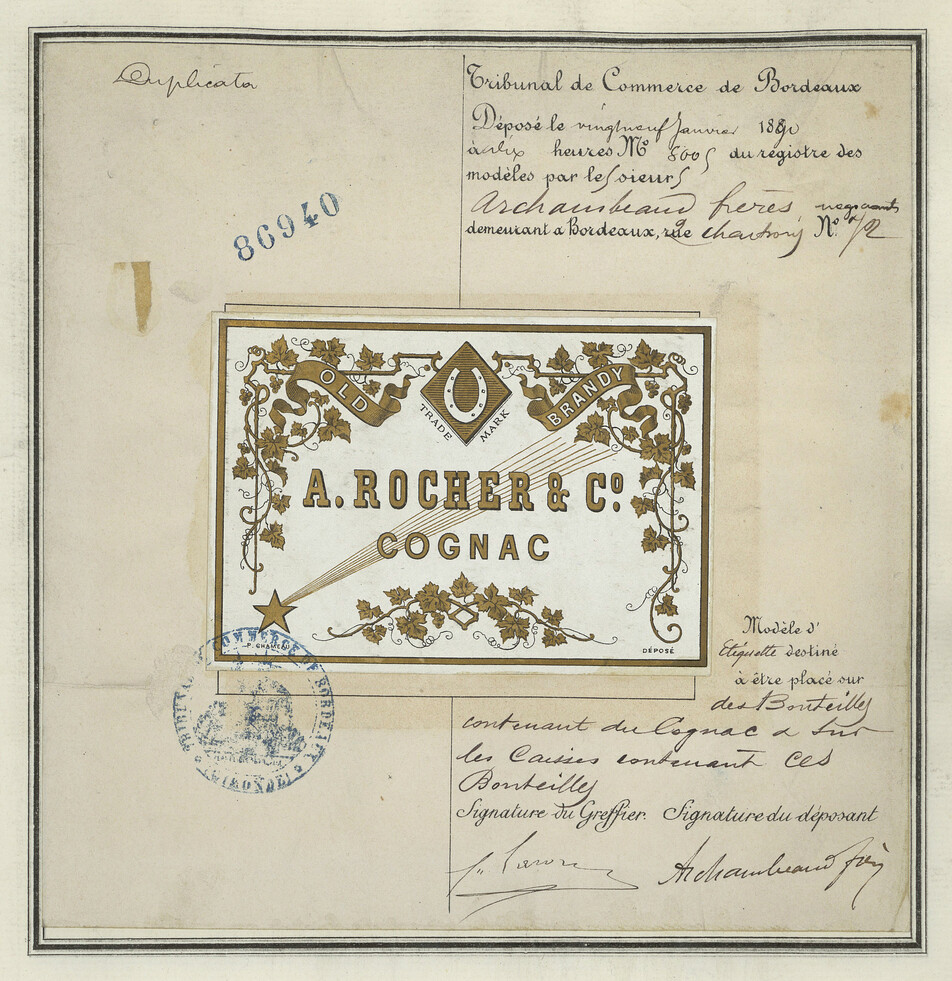 Duplicata
Tribunal de Commerce de Bordeaux
Déposé le vingtneuf Janvier 1890
à dix heures No 8005 du registre des
modèles par les sieurs
Archambeaud frères négociants
demeurant a Bordeaux, rue Chartrons No.
86940
OLD BRANDY
TRADE MARK
A. ROCHER & Co
COGNAC
P. CHAMEAU
DÉPOSÉ
Modèle d'
Etiquette destiné
à être placé sur
des Bouteilles
contenant du Cognac & sur
les Caisses contenant ces
Bouteilles
Signature du Greffier. Signature du déposant
Archambeaud frères
TRIBUNAL DE COMMERCE DE BORDEAUX
(GIRONDE)